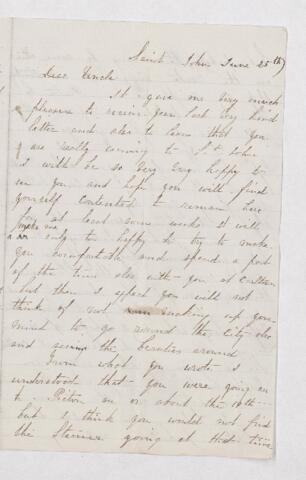 Saint John June 25th
Dear Uncle
It gave me very much
pleasure to receive your last very kind
letter and also to learn that you
are really coming to St John
I will be so very very happy to
see you and hope you will find
yourself contented to remain here
for at least some weeks it will
make me
only to happy to try to make
you comfortable and spend a part
of the time also with you at Carleton
but then I expect you will not
think of not making up your
mind to go around the City also
and seeing the beauties around
From what you wrote I
understood that you were going on
to Pictou on or about the 10th
but I think you would not find
the Steamer going at that time